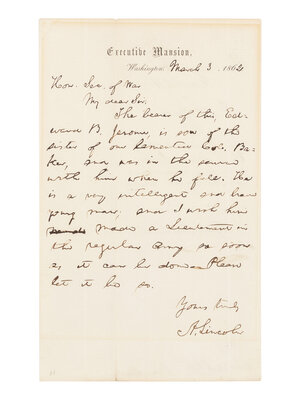 Executive Mansion,
Washington, March 3, 1862
Hon. Sec. of War
My dear Sir.
The bearer of this, Ed-
ward B. Jerome, is son of the
sister of our lamented Col. Ba-
ker, and was in the service
with him when he fell. He
is a very intelligent and brave
young man, and I wish him
made a Lieutenant in
the regular Army so soon
as it can be done. Please
let it be so.
Yours truly
A. Lincoln